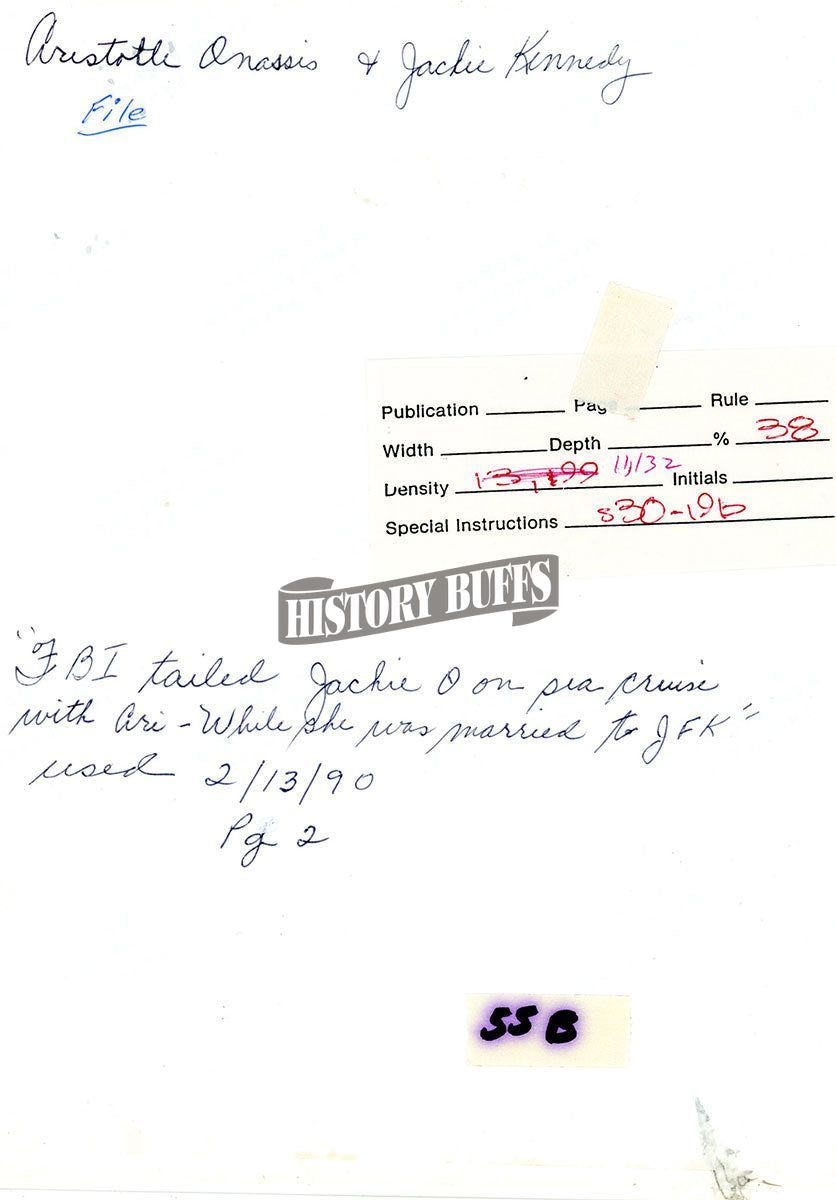 Aristotle Onassis & Jackie Kennedy
File
Publication Page Rule
Width Depth % 38
Density 11/32 Initials
Special Instructions 830-19b
HISTORY BUFFS
"FBI tailed Jackie O on sea cruise
with Ari - While she was married to JFK"
used 2/13/90
Pg 2
55B